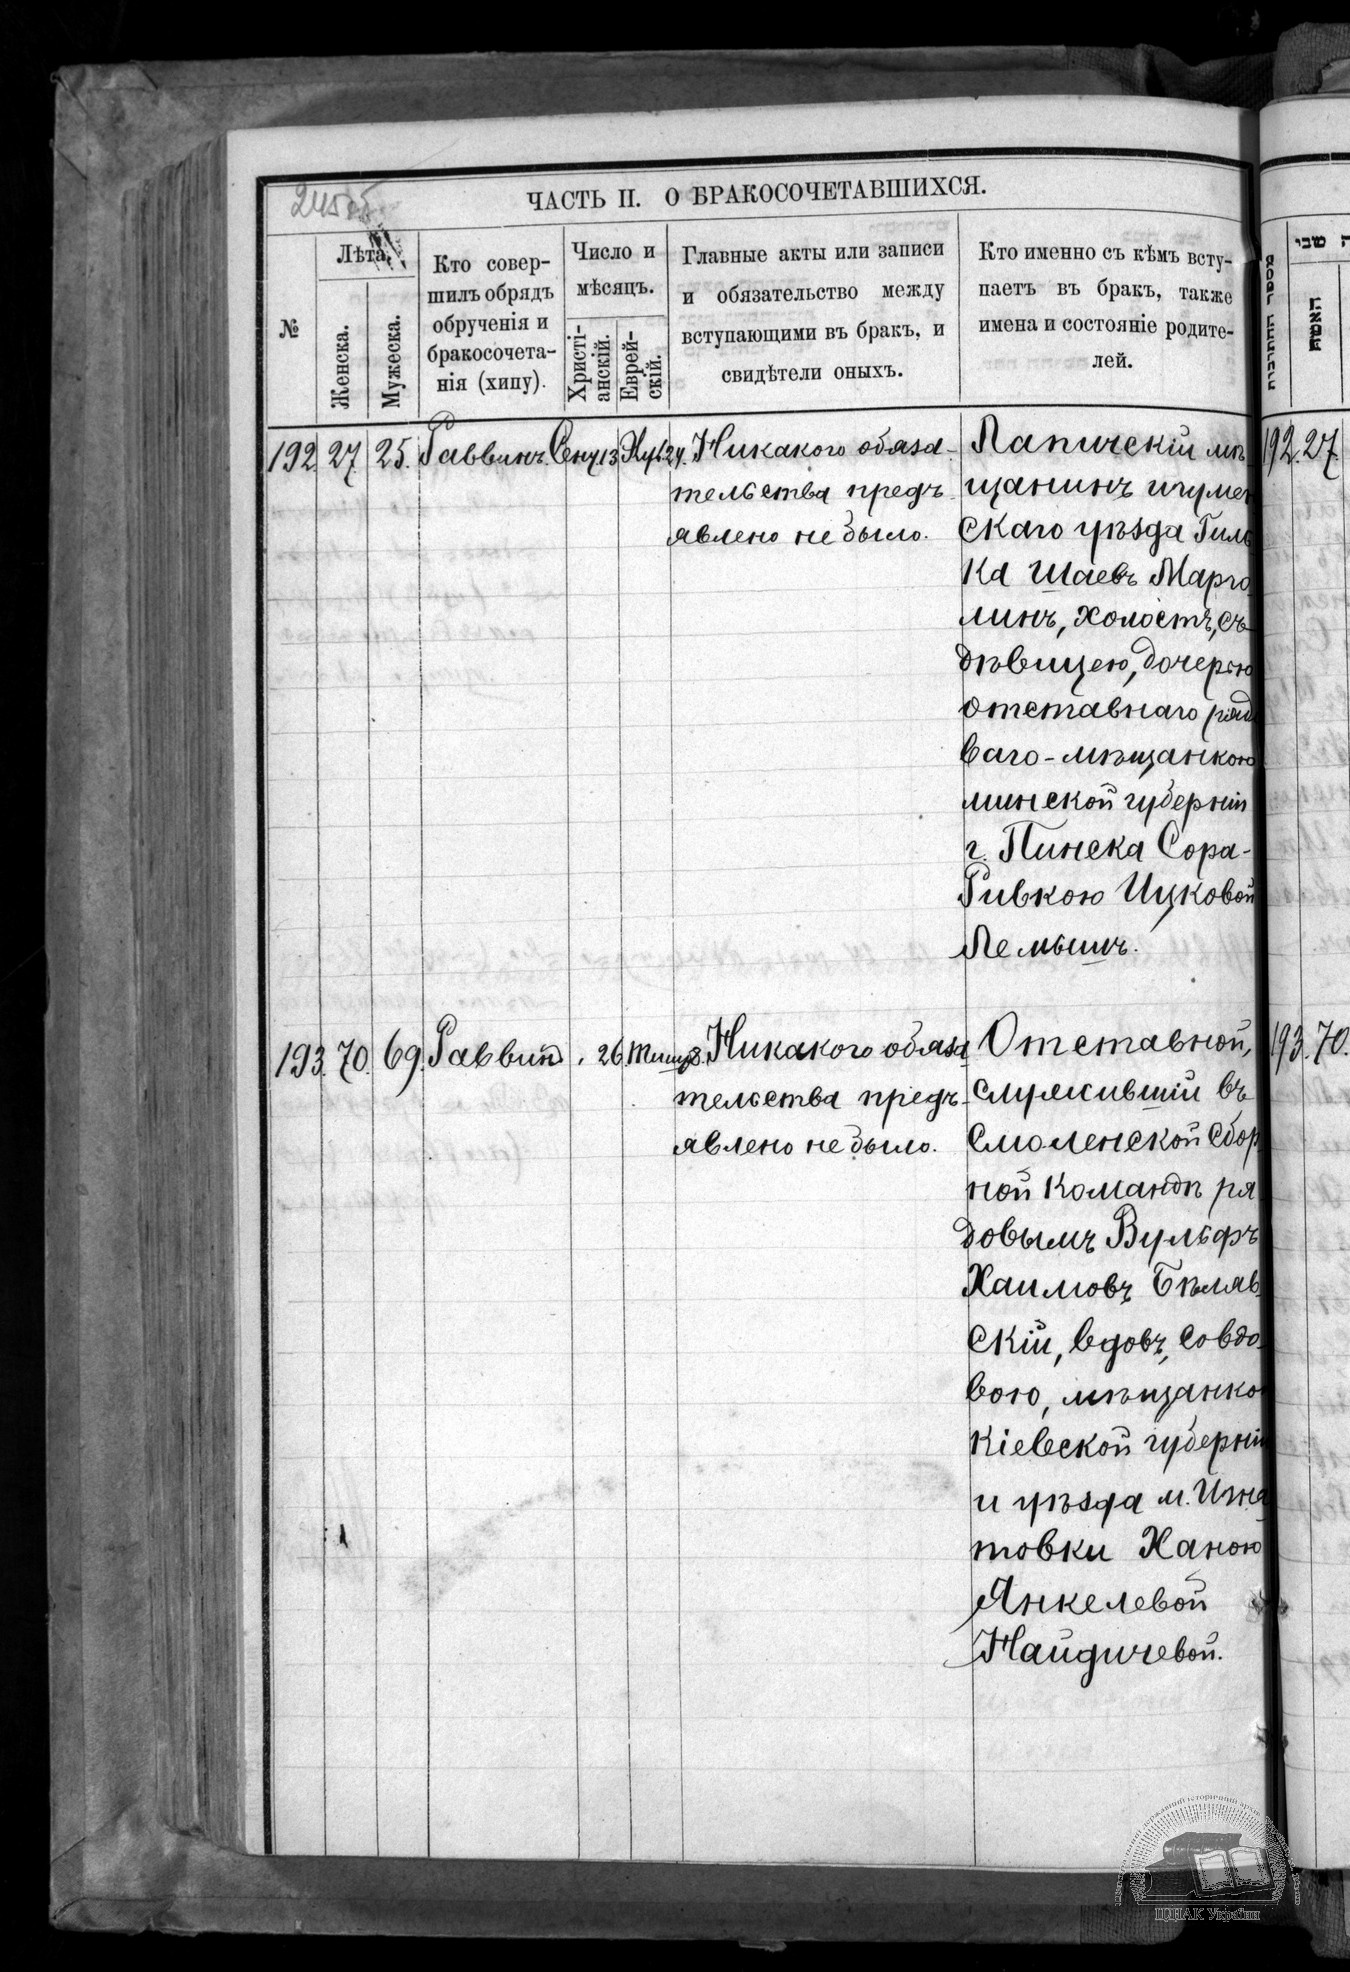 ЧАСТЬ II. О БРАКОСОЧЕТАВШИХСЯ.
№
Лѣта.
Женска.
Мужеска.
Кто совер-
шилъ обрядъ
обрученія и
бракосочета-
нія (хипу).
Число и
мѣсяцъ.
Христі-
анскій.
Еврей-
скій.
Главные акты или записи
и обязательство между
вступающими въ бракъ, и
свидѣтели оныхъ.
Кто именно съ кѣмъ всту-
паетъ въ бракъ, также
имена и состояніе родите-
лей.
מספר החתונות
האשה
שני
192. 27. 25. Раввинъ.
13
24.
Никакого обяза-
тельства предъ-
явлено не было.
Лапичскій мѣ-
щанинъ игумен
скаго уѣзда Гиль
ка Шаевъ Марго-
линъ, холостъ, съ
дѣвицею, дочерью
отставнаго рядо
ваго - мѣщанкою
минской губерніи
г. Пинска Сора-
Ривкою Ицковой
Лемышъ.
192. 27.
193. 70. 69. Раввинъ
26.
8.
Никакого обяза
тельства предъ-
явлено не было.
Отставной,
служившій въ
Смоленской сбор
ной командѣ ря-
довымъ Вульфъ
Хаимовъ Бѣляв-
скій, вдовъ, со вдо-
вою, мѣщанко
Кіевской губерніи
и уѣзда м. Игна
товки Ханою
Янкелевой
Найдичевой.
193. 70.
ЦДІАК України